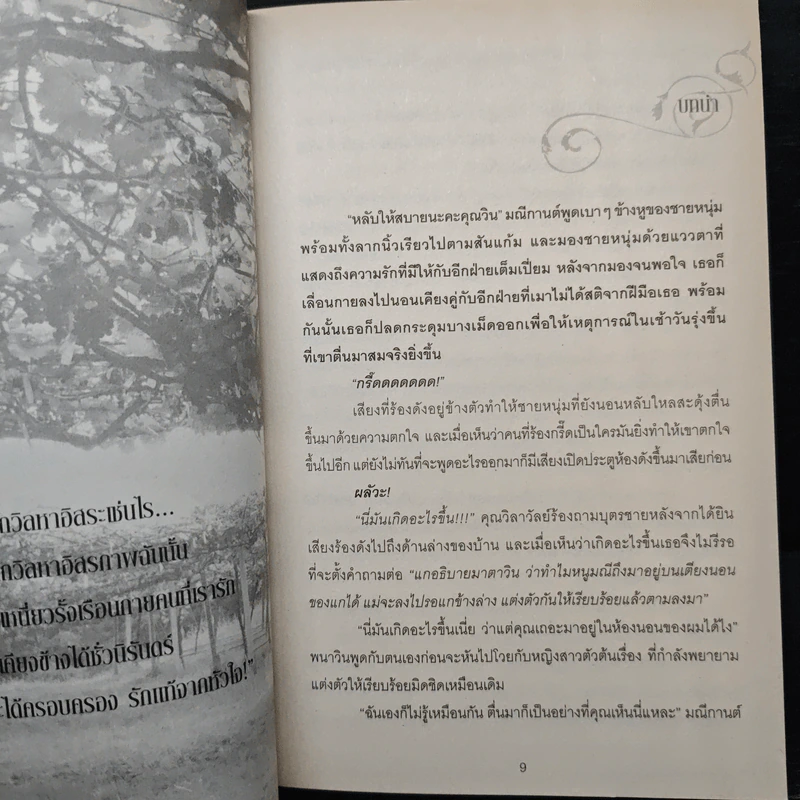 กวิลหาอิสระเช่นไร...
กวิลหาอิสรภาพฉันนั้น
เหนี่ยวรั้งเรือนกายคนที่เรารัก
เคียงข้างได้ชั่วนิรันดร์
ได้ครอบครอง รักแท้จากหัวใจ!"
บทนำ
"หลับให้สบายนะคะคุณวิน" มณีกานต์พูดเบาๆ ข้างหูของชายหนุ่ม
พร้อมทั้งลากนิ้วเรียวไปตามสันแก้ม และมองชายหนุ่มด้วยแววตาที่
แสดงถึงความรักที่มีให้กับอีกฝ่ายเต็มเปี่ยม หลังจากมองจนพอใจ เธอก็
เลื่อนกายลงไปนอนเคียงคู่กับอีกฝ่ายที่เมาไม่ได้สติจากฝีมือเธอ พร้อม
กันนั้นเธอก็ปลดกระดุมบางเม็ดออกเพื่อให้เหตุการณ์ในเช้าวันรุ่งขึ้น
ที่เขาตื่นมาสมจริงยิ่งขึ้น
"กรี๊ดดดดดดด!"
เสียงที่ร้องดังอยู่ข้างตัวทำให้ชายหนุ่มที่ยังนอนหลับใหลสะดุ้งตื่น
ขึ้นมาด้วยความตกใจ และเมื่อเห็นว่าคนที่ร้องกรี๊ดเป็นใครมันยิ่งทำให้เขาตกใจ
ขึ้นไปอีก แต่ยังไม่ทันที่จะพูดอะไรออกมาก็มีเสียงเปิดประตูห้องดังขึ้นมาเสียก่อน
ผลัวะ!
"นี่มันเกิดอะไรขึ้น!!!" คุณวิลาวัลย์ร้องถามบุตรชายหลังจากได้ยิน
เสียงร้องดังไปถึงด้านล่างของบ้าน และเมื่อเห็นว่าเกิดอะไรขึ้นเธอจึงไม่รีรอ
ที่จะตั้งคำถามต่อ "แกอธิบายมาตาวิน ว่าทำไมหนูมณีถึงมาอยู่บนเตียงนอน
ของแกได้ แม่จะลงไปรอแกข้างล่าง แต่งตัวกันให้เรียบร้อยแล้วตามลงมา"
"นี่มันเกิดอะไรขึ้นเนี่ย ว่าแต่คุณเถอะมาอยู่ในห้องนอนของผมได้ไง"
พนาวินพูดกับตนเองก่อนจะหันไปโวยกับหญิงสาวตัวต้นเรื่อง ที่กำลังพยายาม
แต่งตัวให้เรียบร้อยมิดชิดเหมือนเดิม
"ฉันเองก็ไม่รู้เหมือนกัน ตื่นมาก็เป็นอย่างที่คุณเห็นนี่แหละ" มณีกานต์
9